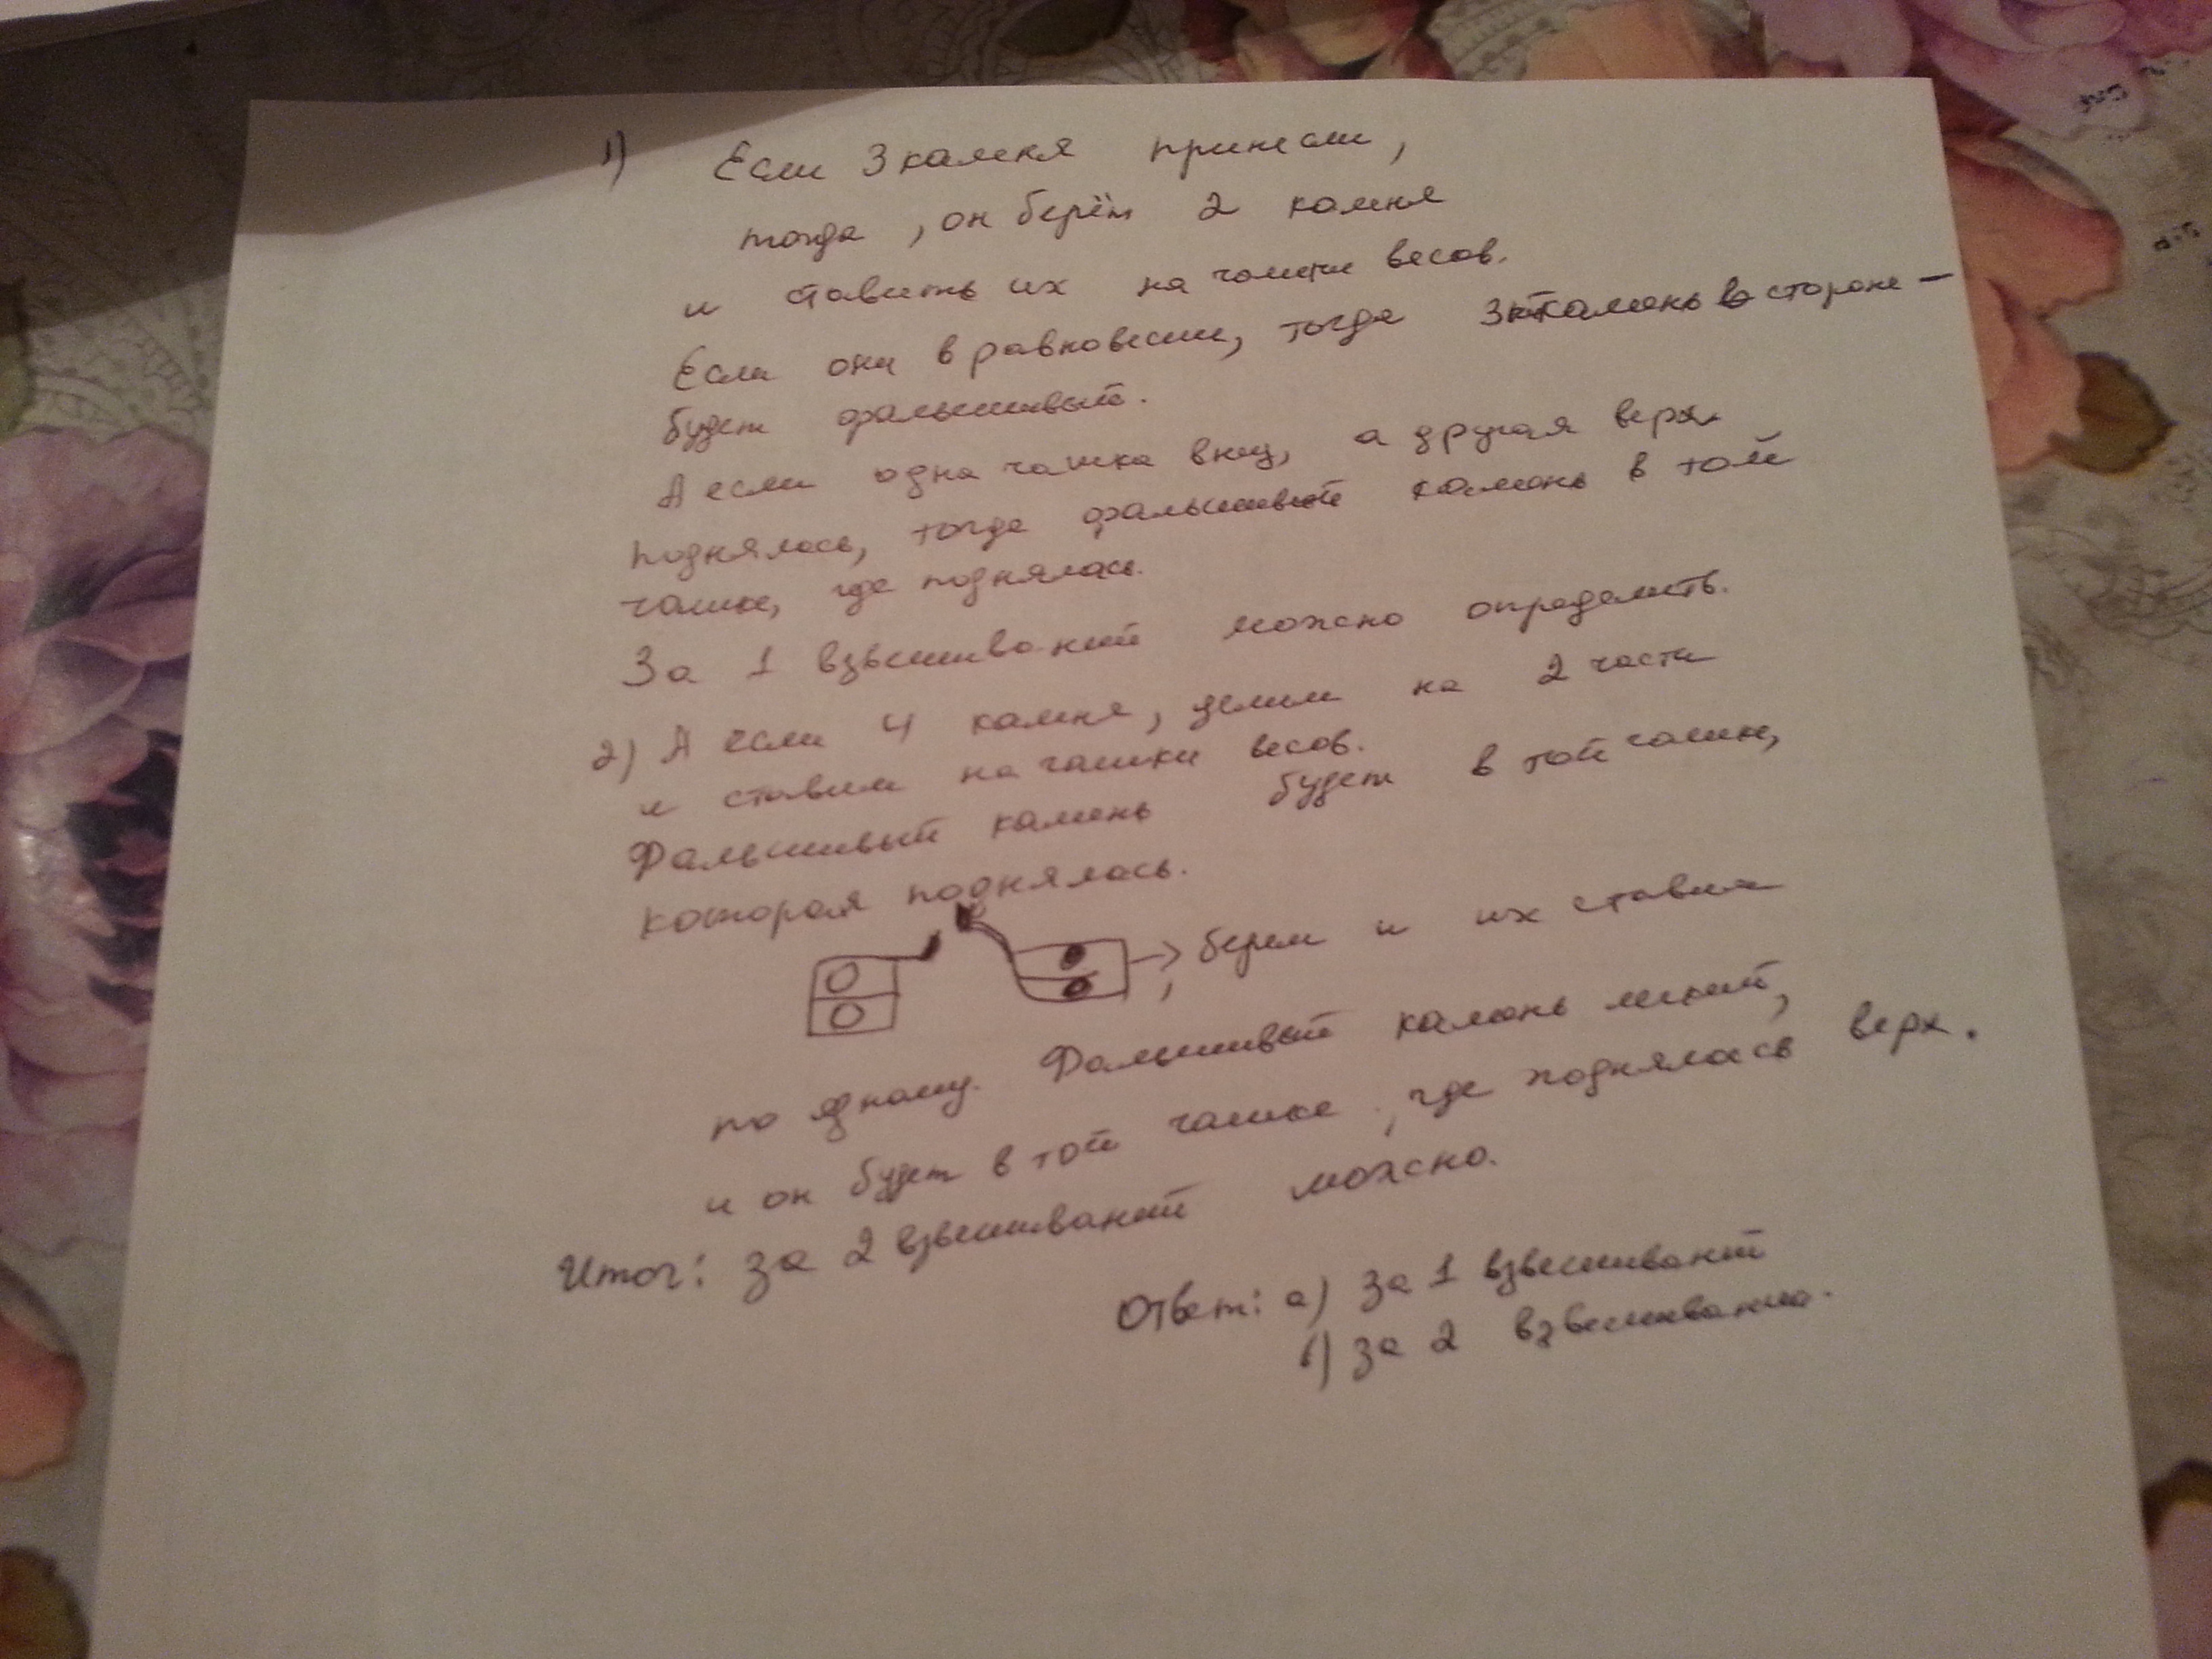 1) Если 3 камня принесли,
тогда, он берём 2 камня
и ставить их на чашки весов.
Если они в равновесии, тогда 3 камень в стороне —
будет фальшивый.
А если одна чашка вниз, а другая верх
поднялась, тогда фальшивый камень в той
чашке, где поднялась.
За 1 взвешиваний можно определить.
2) А если 4 камня, делим на 2 части
и ставим на чашки весов.
Фальшивый камень будет в той чашке,
которая поднялась.
берем и их ставим
по одному. Фальшивый камень легкий,
и он будет в той чашке, где поднялась верх.
Итог: за 2 взвешиваний можно.
Ответ: а) за 1 взвешиваний
б) за 2 взвешивания.